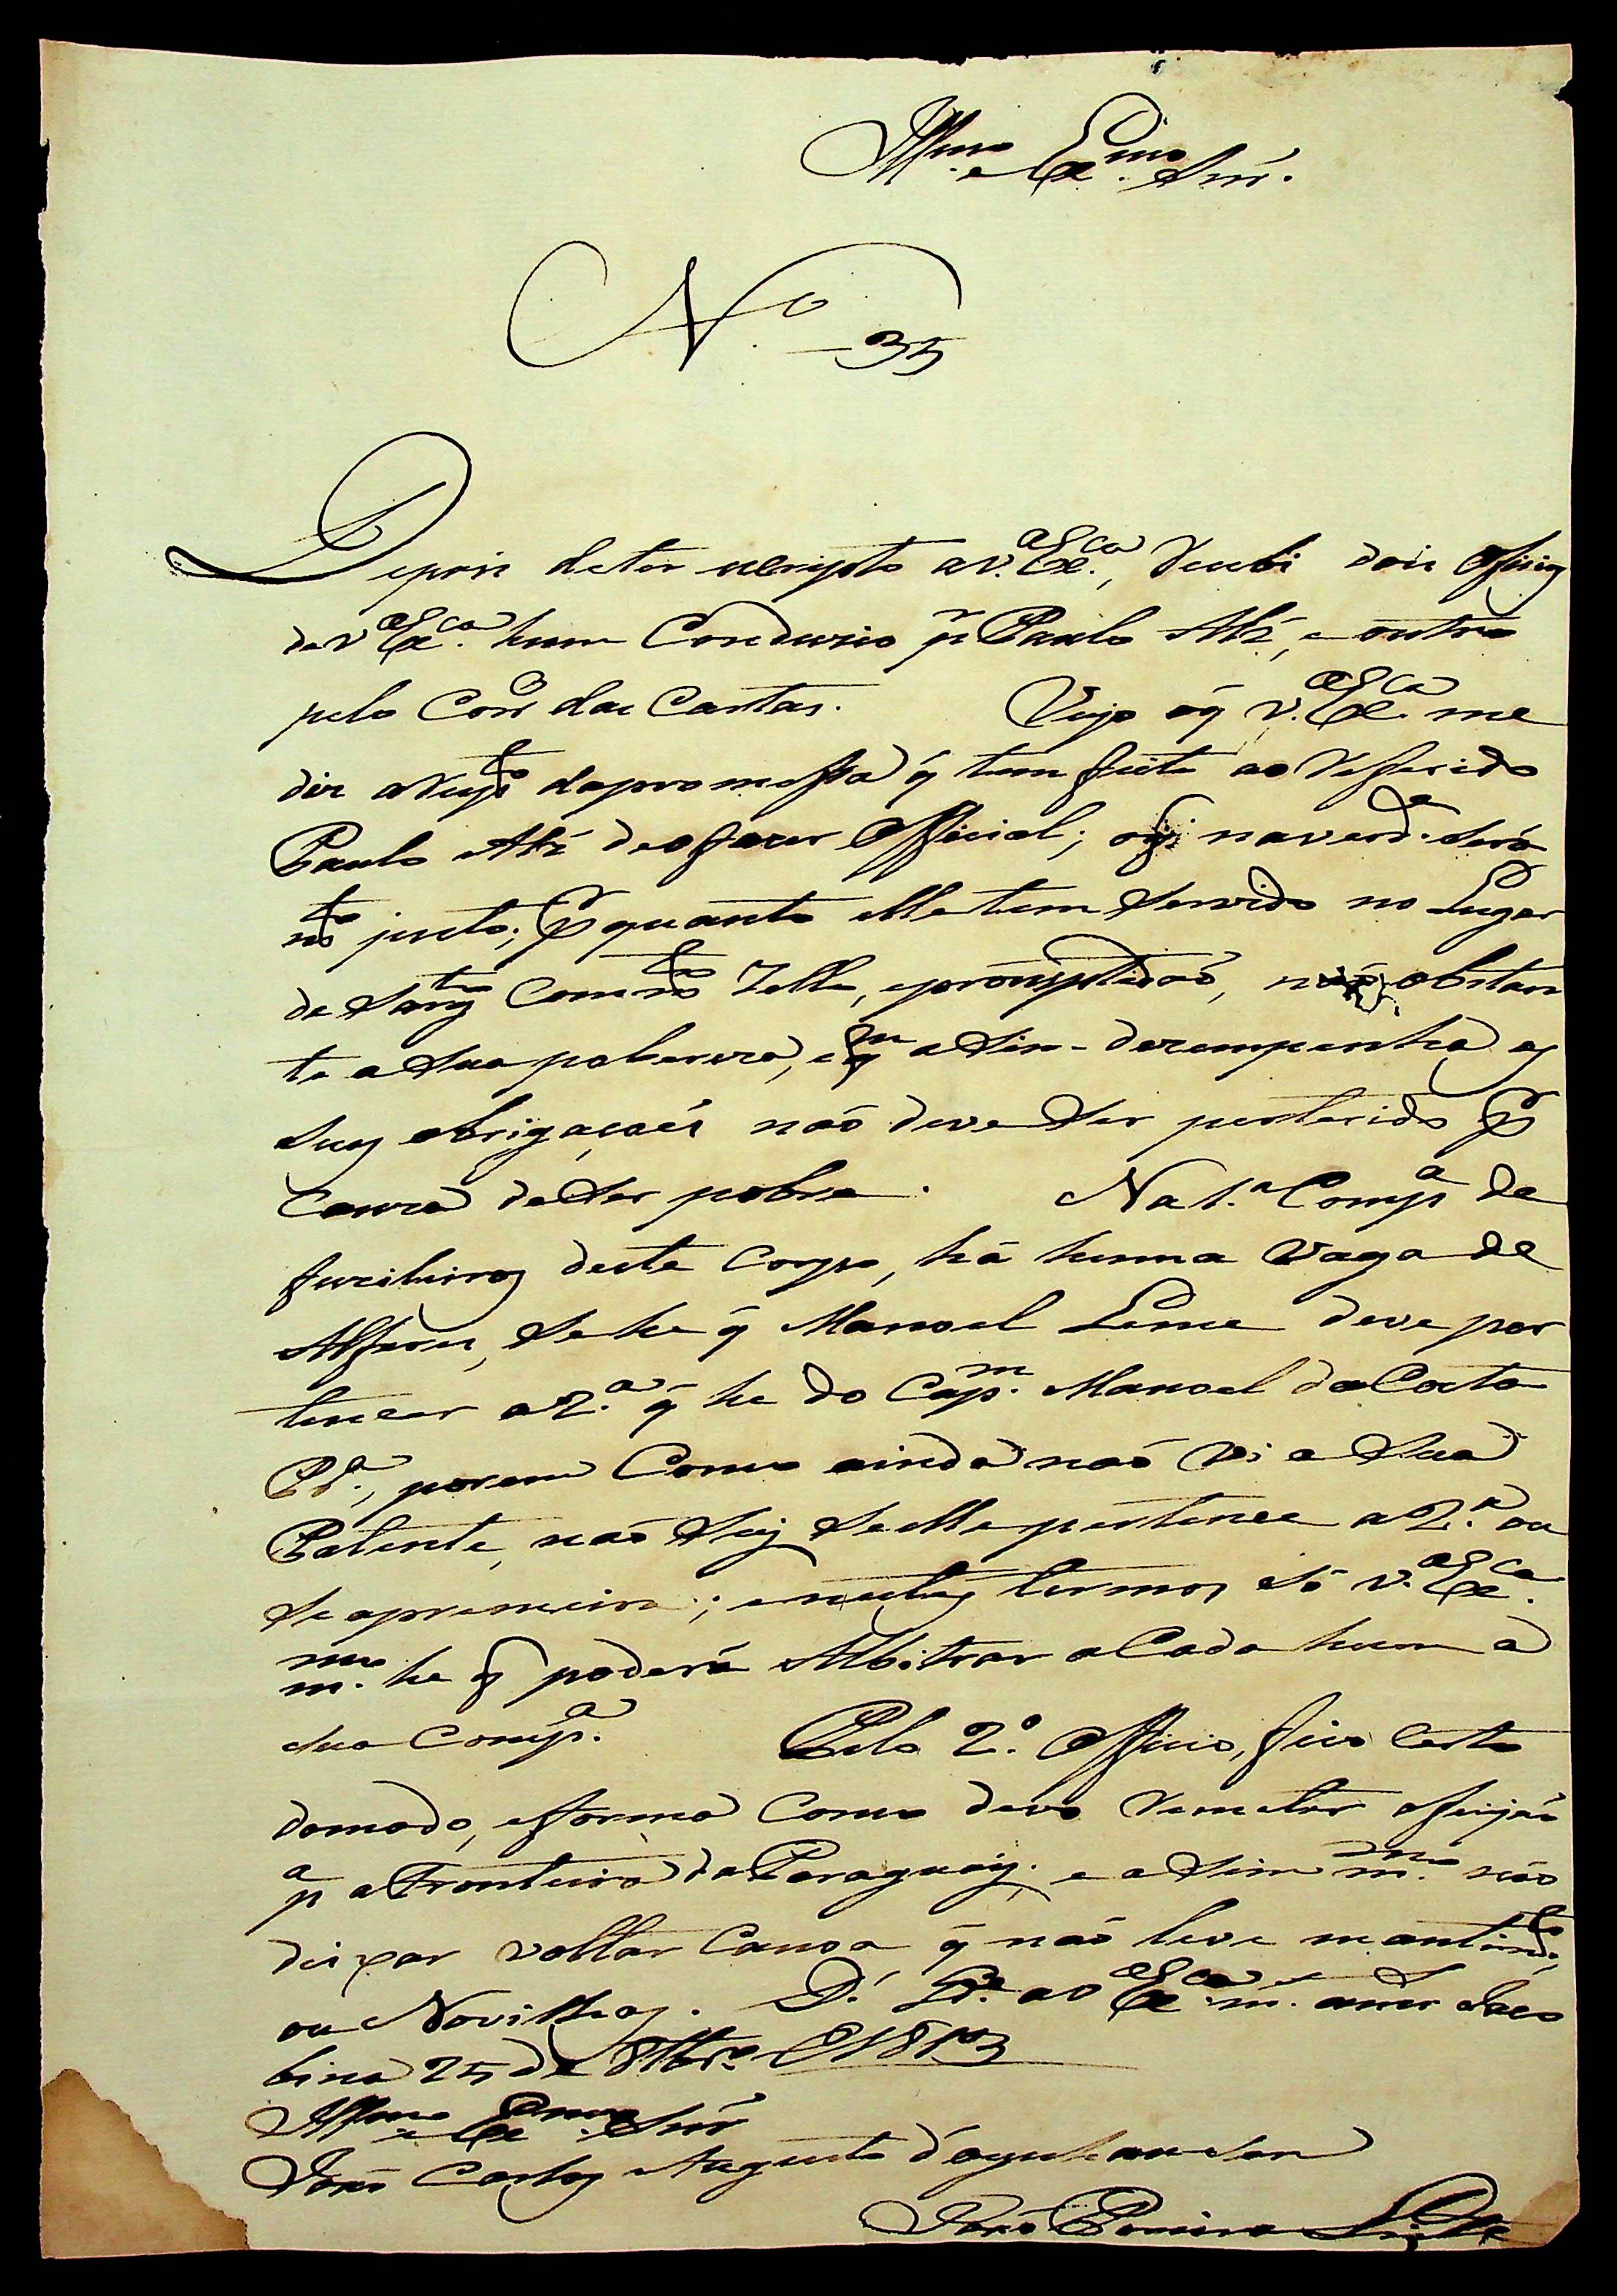 Illmo. e Exmo. Snr.
No. 35
Depois deter escripto a V. Exca., Recebi dois officios
de V Exca. hum Condusido pr Paulo Alz', e outro
pelo Corro das Cartas. Vejo oq̃ V. Exca. me
diz a respto dapromessa q̃ tem feito ao Referido
Paulo Alz' deofazer official; oq̃ naverde. Será
mto justo; pr quanto elle tem Servido no Lugar
de Sargto Com mto Zello, eprõmptidaó, naõ obstan
te a Sua pobreza, e qm asim dezempenha as
Suas obrigaçoẽs naó deve Ser preterido pr
Cauza deSer pobre. Na 1.ª Compa de
fuzileiros deste Corpo, há huma Vaga de
Alferes, Se he q̃ Manoel Leme deve per
tencer a 2.ª q̃ he do Capm. Manoel da Costa
Pra., porem Como ainda naó Vi a Sua
Patente, naó Sey Seelle pertence a 2.ª ou
Se aprimeira; enestes termos só V. Exca.
mmo. he q̃ poderá Albitrar a Cada hum a
Sua Compa. Pelo 2.º officio, fico Certo
domodo, eforma Como devo Remeter ofeijaó
pa aFronteira do Paraguay; e a Sim mmo. naó
deixar voltar Canoa q̃ naó leve mantimto,
ou Novilhos. D.s Gde. a V Exca. m. annos Jaco
bina 25 de 8tbro. E 1813
Illmo e Exmo. Snr'
Joaó Carlos Augusto d'oyenhausen
Joaó Pereira Leite